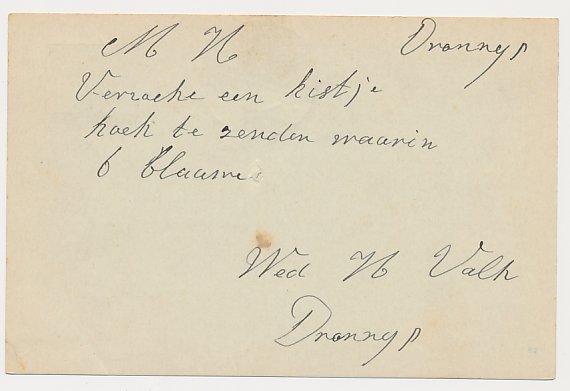 M H Dronryp
Verzoeke een kistje
koek te zenden waarin
6 blaauwe
Wed H Valk
Dronryp